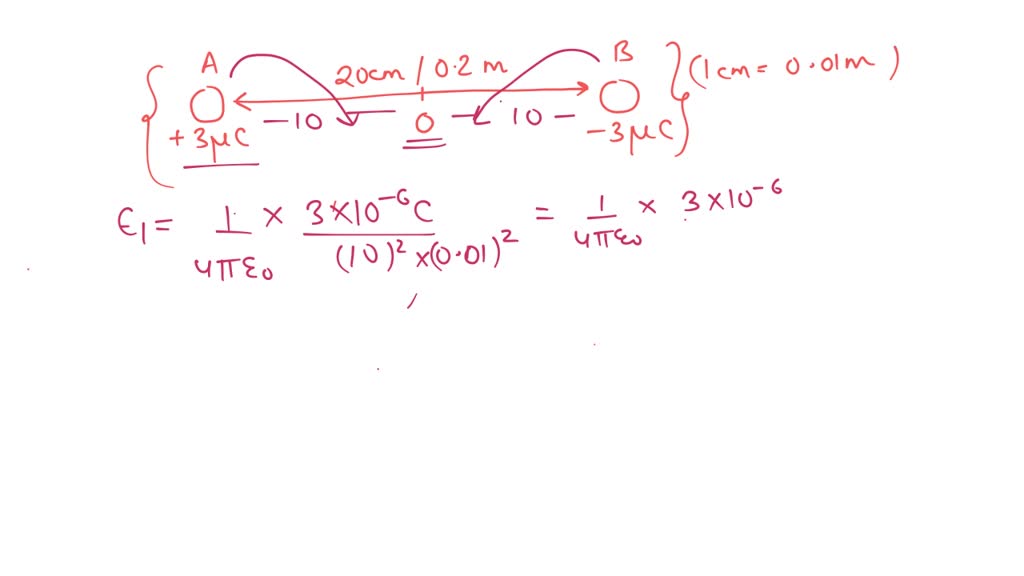 A 20cm / 0.2 m B (1cm = 0.01m)
-10 0 10 -
+3μC -3μC
E1 = 1/4πε0 × 3×10^-6C/(10)^2 ×(0.01)^2 = 1/4πε0 × 3×10^-6